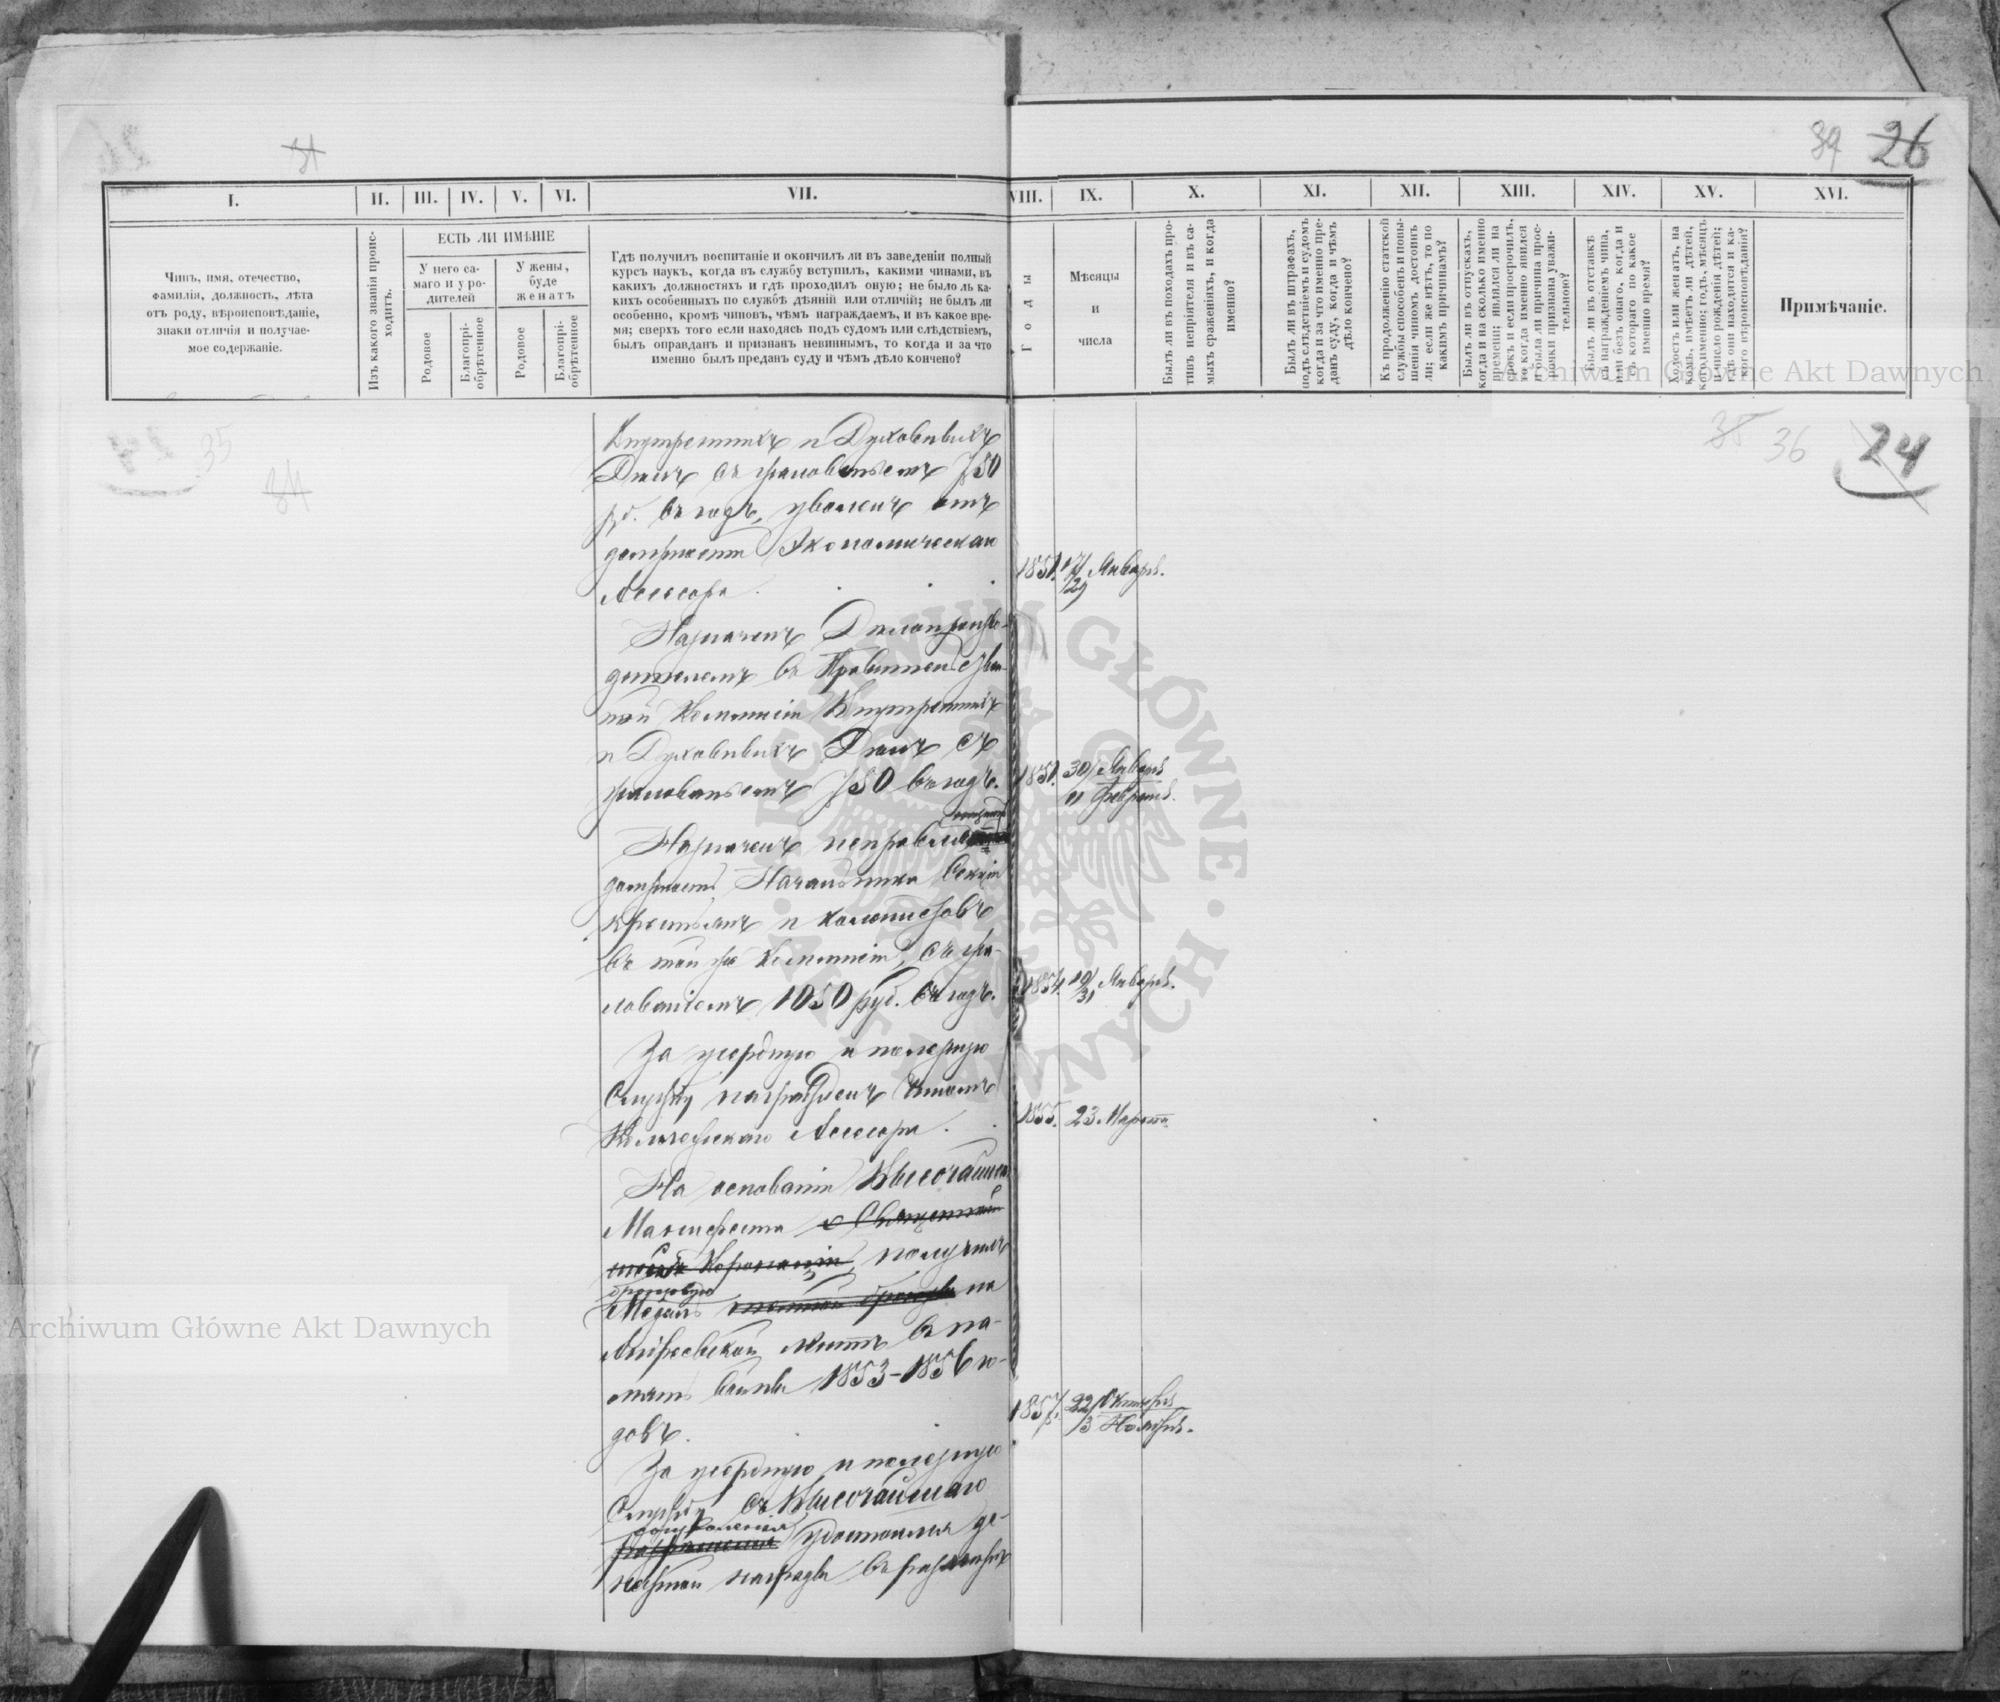 31
39 26
I. II. III. IV. V. VI. VII. VIII. IX. X. XI. XII. XIII. XIV. XV. XVI.
Чинъ, имя, отечество,
фамилія, должность, лѣта
отъ роду, вѣроисповѣданіе,
знаки отличія и получае-
мое содержаніе.
Изъ какого званія проис-
ходитъ.
ЕСТЬ ЛИ ИМѢНІЕ
У него са-
маго и у ро-
дителей
У жены,
буде
женатъ
Родовое
Благопрі-
обрѣтенное
Родовое
Благопрі-
обрѣтенное
Гдѣ получилъ воспитаніе и окончилъ ли въ заведеніи полный
курсъ наукъ, когда въ службу вступилъ, какими чинами, въ
какихъ должностяхъ и гдѣ проходилъ оную; не было ль ка-
кихъ особенныхъ по службѣ дѣяній или отличій; не былъ ли
особенно, кромѣ чиновъ, чѣмъ награждаемъ, и въ какое вре-
мя; сверхъ того если находясь подъ судомъ или слѣдствіемъ,
былъ оправданъ и признанъ невиннымъ, то когда и за что
именно былъ преданъ суду и чѣмъ дѣло кончено?
Годы
Мѣсяцы
и
числа
Былъ ли въ походахъ про-
тивъ непріятеля и въ са-
мыхъ сраженіяхъ, и когда
именно?
Былъ ли въ штрафахъ,
подъ слѣдствіемъ и судомъ
когда и за что именно пре-
данъ суду, когда и чѣмъ
дѣло кончено?
Къ продолженію статской
службы способенъ и повы-
шенія чиномъ достоинъ
ли; если же нѣтъ, то по
какимъ причинамъ?
Былъ ли въ отпускахъ,
когда и на сколько именно
времени; являлся ли на
срокъ и если просрочилъ,
то когда именно явился
и была ли причина прос-
рочки признана уважи-
тельною?
Былъ ли въ отставкѣ
съ награжденіемъ чина,
или безъ онаго, когда и
съ котораго по какое
именно время?
Холостъ или женатъ, на
комъ, имѣетъ ли дѣтей,
кого именно; годъ, мѣсяцъ
и число рожденія дѣтей;
гдѣ они находятся и ка-
кого вѣроисповѣданія?
Примѣчаніе.
Archiwum Główne Akt Dawnych
35
34
35 36 24
Внутреннихъ и Духовныхъ
Дѣлъ съ жалованьемъ 750
руб. въ годъ, уволенъ отъ
должности Экономическаго
Асессора. 1851. 17/29 Января.
Назначенъ Дѣлопроизво-
дителемъ въ Правительствен-
ной Коммисіи Внутреннихъ
и Духовныхъ Дѣлъ съ
жалованьемъ 750 въ годъ. 1851. 30/11 Января Февраля.
Назначенъ
должность Начальника Секціи
крестьянъ и колонистовъ
въ той же Коммисіи, съ жа-
лованіемъ 1050 руб. въ годъ. 1854. 19/31 Января.
За усердную и полезную
службу награжденъ чиномъ
Коллежскаго Асессора. 1855. 23 Марта
На основаніи Высочайшаго
Манифеста о Священной
Коронаціи, получилъ
бронзовую
Медаль на
Андреевской лентѣ въ па-
мять войны 1853-1856 го-
довъ. 1857. 22/3 Октября Ноября.
За усердную и полезную
службу, съ Высочайшаго
соизволенія
разрѣшенія удостоился де-
нежной награды въ размѣрѣ
ARCHIWUM GŁÓWNE AKT DAWNYCH
Archiwum Główne Akt Dawnych